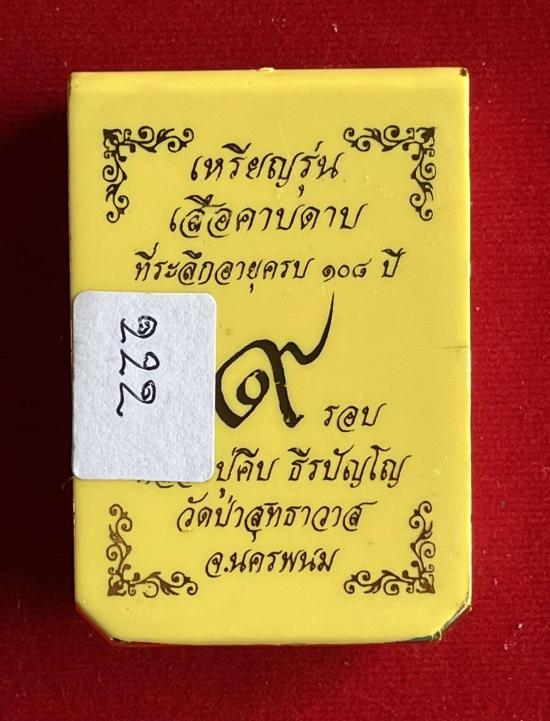 เหรียญรุ่น
เสือคาบดาบ
ที่ระลึกอายุครบ ๑๐๘ ปี
๙ รอบ
ปู่คีบ ธีรปัญโญ
วัดป่าสุทธาวาส
จ.นครพนม